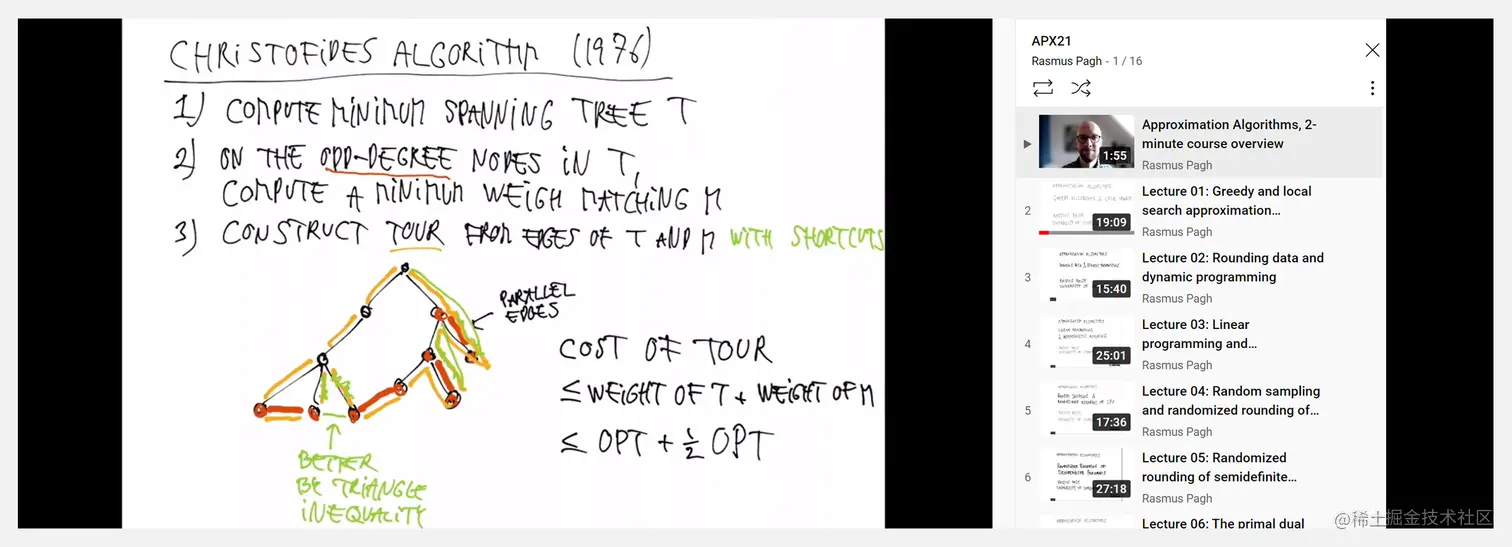 CHRISTOFIDES ALGORITHM (1976)
1) COMPUTE MINIMUM SPANNING TREE T
2) ON THE ODD-DEGREE NODES IN T,
COMPUTE A MINIMUM WEIGH MATCHING M
3) CONSTRUCT TOUR FROM EDGES OF T AND M WITH SHORTCUTS
PARALLEL
EDGES
COST OF TOUR
≤ WEIGHT OF T + WEIGHT OF M
≤ OPT + 1/2 OPT
BETTER
BE TRIANGLE
INEQUALITY
APX21
Rasmus Pagh - 1 / 16
1:55
Approximation Algorithms, 2-
minute course overview
Rasmus Pagh
2
19:09
Lecture 01: Greedy and local
search approximation...
Rasmus Pagh
3
15:40
Lecture 02: Rounding data and
dynamic programming
Rasmus Pagh
4
25:01
Lecture 03: Linear
programming and...
Rasmus Pagh
5
17:36
Lecture 04: Random sampling
and randomized rounding of...
Rasmus Pagh
6
27:18
Lecture 05: Randomized
rounding of semidefinite...
Rasmus Pagh
Lecture 06: The primal dual
@稀土掘金技术社区